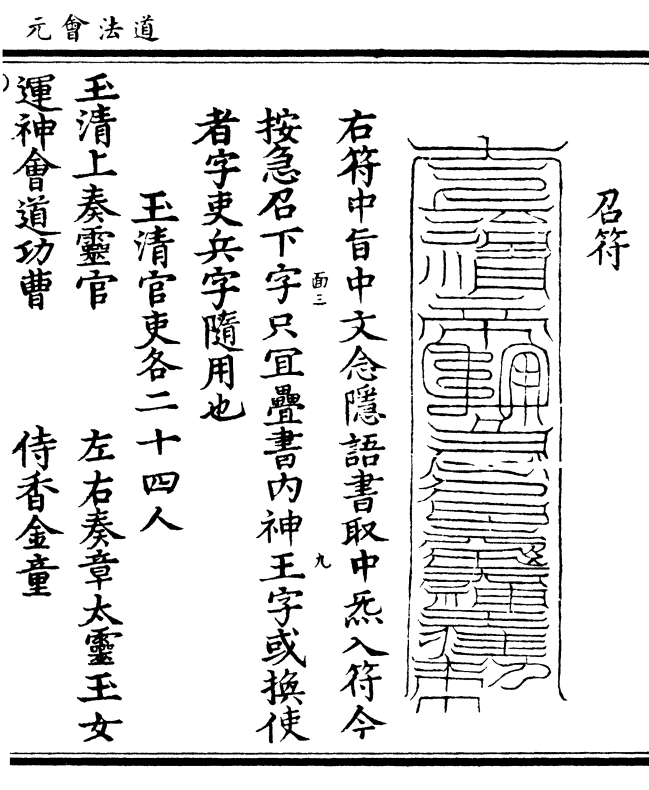 道法會元
召符
右符中旨中文念隱語書取中炁入符今
按急召下字只宜疊書內神王字或換使
者字吏兵字隨用也
面三
九
玉清官吏各二十四人
玉清上奏靈官
左右奏章太靈玉女
運神會道功曹
侍香金童